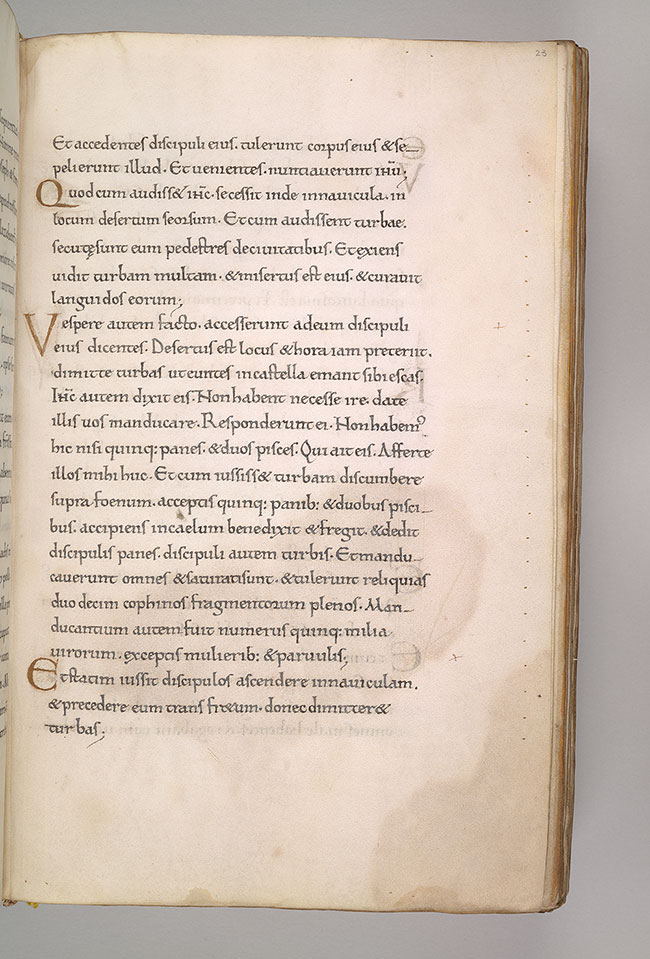 23
Et accedentes discipuli eius. tulerunt corpus eius & se-
pelierunt illud. Et uenientes. nuntiauerunt ihu;
Quod cum audiss& ihc. secessit inde innauicula. in
locum desertum seorsum. Et cum audissent turbae.
secutęsunt eum pedestres deciuitatibus. Et exiens
uidit turbam multam. & misertus est eius. & curauit
languidos eorum;
Vespere autem facto. accesserunt adeum discipuli
eius dicentes. Desertus est locus & hora iam preteriit.
dimitte turbas ut euntes incastella emant sibi escas.
Ihc autem dixit eis. Non habent necesse ire. date
illis uos manducare. Responderunt ei. Non habem᾽
hic nisi quinq: panes. & duos pisces. Qui ait eis. Afferte
illos mihi huc. Et cum iussiss& turbam discumbere
supra foenum. acceptis quinq: panib: & duobus pisci-
bus. accipiens incaelum benedixit & fregit. & dedit
discipulis panes. discipuli autem turbis. Et mandu-
cauerunt omnes & saturatisunt. & tulerunt reliquias
duodecim cophinos fragmentorum plenos. Man-
ducantium autem fuit numerus quinq: milia
uirorum. exceptis mulierib: & paruulis;
Et statim iussit discipulos ascendere innauiculam.
& precedere eum trans fr&um. donec dimitter&
turbas;